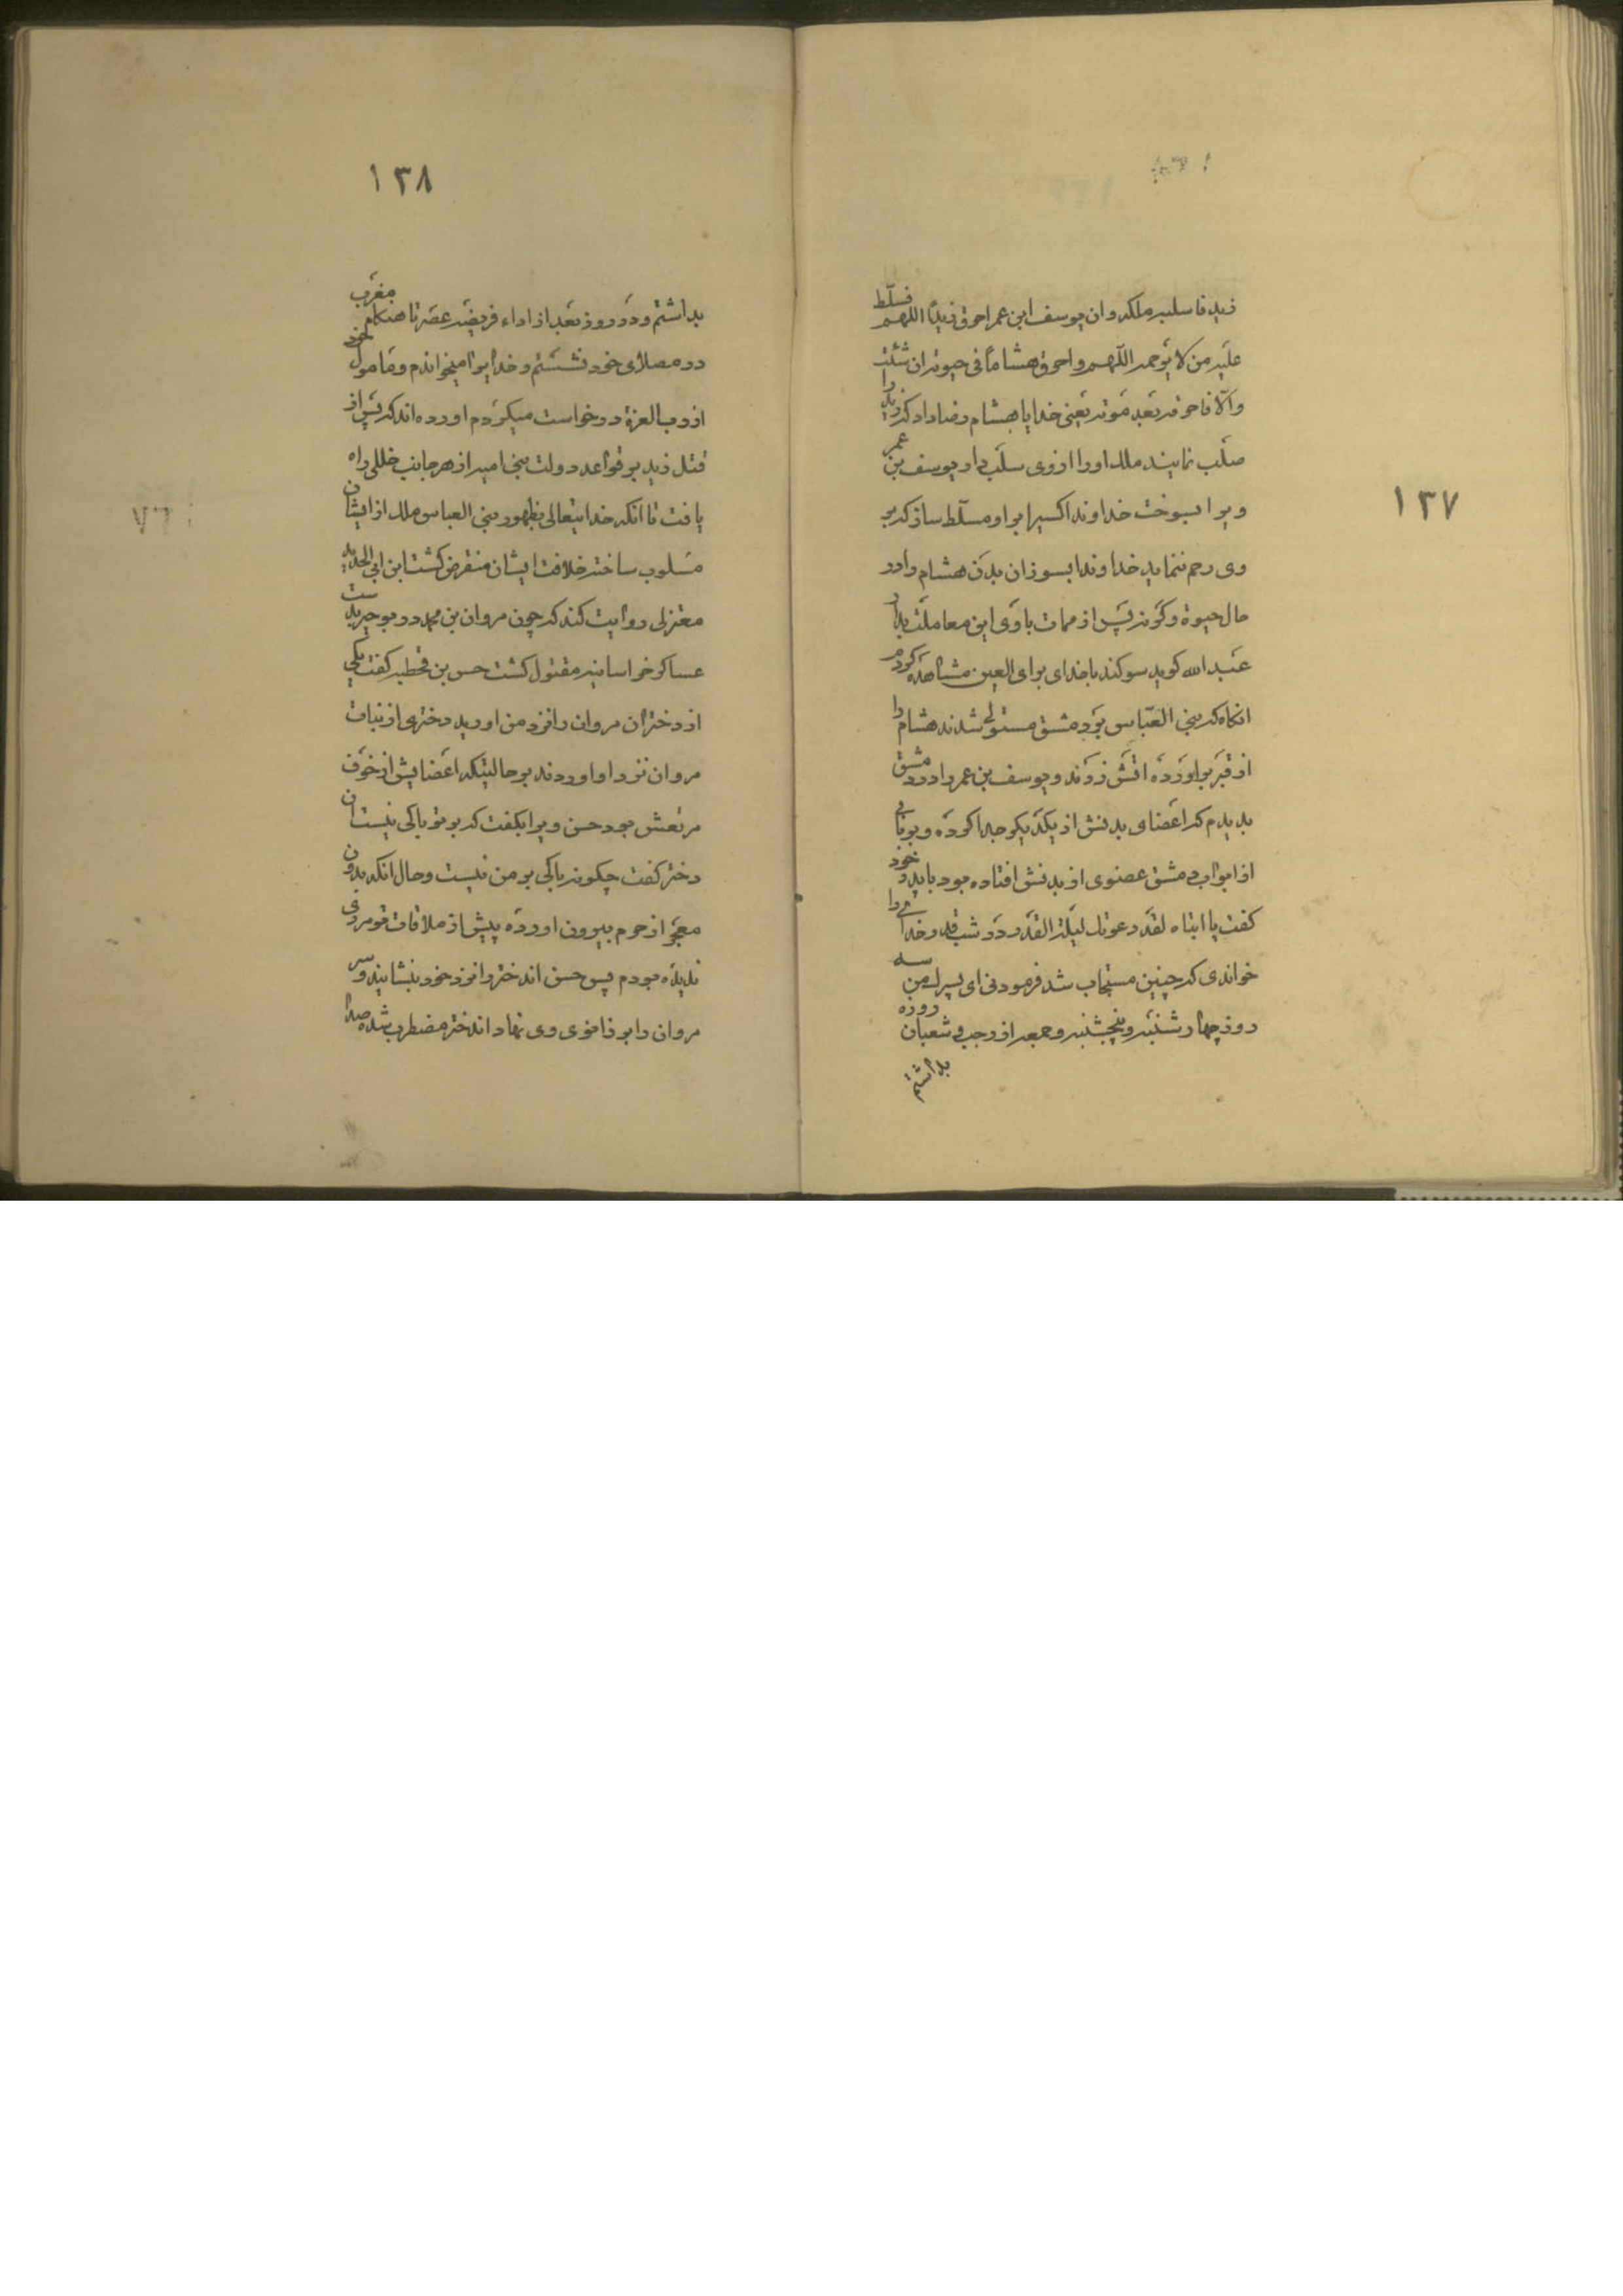 ۱۳۷
زید فاسلبه ملکه وان یوسف ابن عمر احرق زیدًا اللهم فسلّط
علیه من لا یرحمه اللّهم واحرق هشاماً فی حیوته ان شئت
والّا فاحرقه بعد موته یعنی خدایا هشام رضا داد که زید را
صلب نمایند ملک او را از وی سلب دار یوسف بن عمر
ویرا بسوخت خداوندا کسیرا بر او مسلّط ساز که بر
وی رحم ننماید خداوندا بسوزان بدن هشام را در
حال حیوة وگرنه پس از ممات با وی این معاملت بدار
عبدالله کوید سوکند با خدای برای العین مشاهده کردم
انکاه که بنی العبّاس بر دمشق مستولی شدند هشام را
از قبر براورده اتش زدند و یوسف بن عمر را در دمشق
بدیدم که اعضای بدنش از یکدیکر جدا کرده و بر بابی
از ابواب دمشق عضوی از بدنش افتاده بود با پدر خود
کفت یا ابتاه لقد دعوتک لیلة القدر در شب قدر خدای را
خواندی که چنین مستجاب شد فرمود نی ای پسرک من سه
روز چهارشنبه و پنجشنبه و جمعه از رجب و شعبان روزه
بداشتم
۱۳۸
بداشتم و در روز بعد از اداء فریضه عصر تا هنکام مغرب
در مصلای خود نشستم و خدایرا میخواندم و مامول خود
از رب العزة درخواست میکردم اورده اند که پس از
قتل زید بر قواعد دولت بنی امیه از هر جانب خللی راه
یافت تا انکه خدایتعالی بظهور بنی العباس ملک از ایشان
مسلوب ساخته خلافت ایشان منقرض کشت ابن ابی الحدید
معتزلی روایت کند که چون مروان بن محمد در بوجیر بدست
عساکر خراسانیه مقتول کشت حسن بن قحطبه کفت یکی
از دختران مروان را نزد من اورید دختری از بنات
مروان نزد او اوردند بر حالیتیکه اعضایش از خوف
مرتعش بود حسن ویرا بکفت که بر تو باکی نیست ان
دختر کفت چکونه باکی بر من نیست و حال انکه بدون
معجر از حرم بیرون اورده پیش از ملاقات تو مردی
ندیده بودم پس حسن اندختر را نزد خود بنشانید و سر
مروان را بر زانوی وی نهاد اندختر مضطرب شده صدا